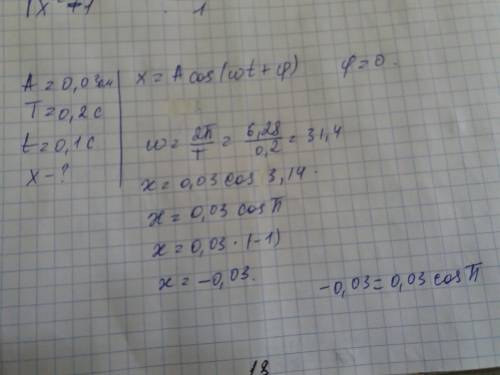 A = 0,03см
T = 0,2 с
t = 0,1 с
X - ?
x = A cos(ωt + φ)    φ = 0.
ω = 2π/T = 6,28/0,2 = 31,4
x = 0,03 cos 3,14.
x = 0,03 cos π
x = 0,03 · (-1)
x = -0,03.    -0,03 = 0,03 cos π